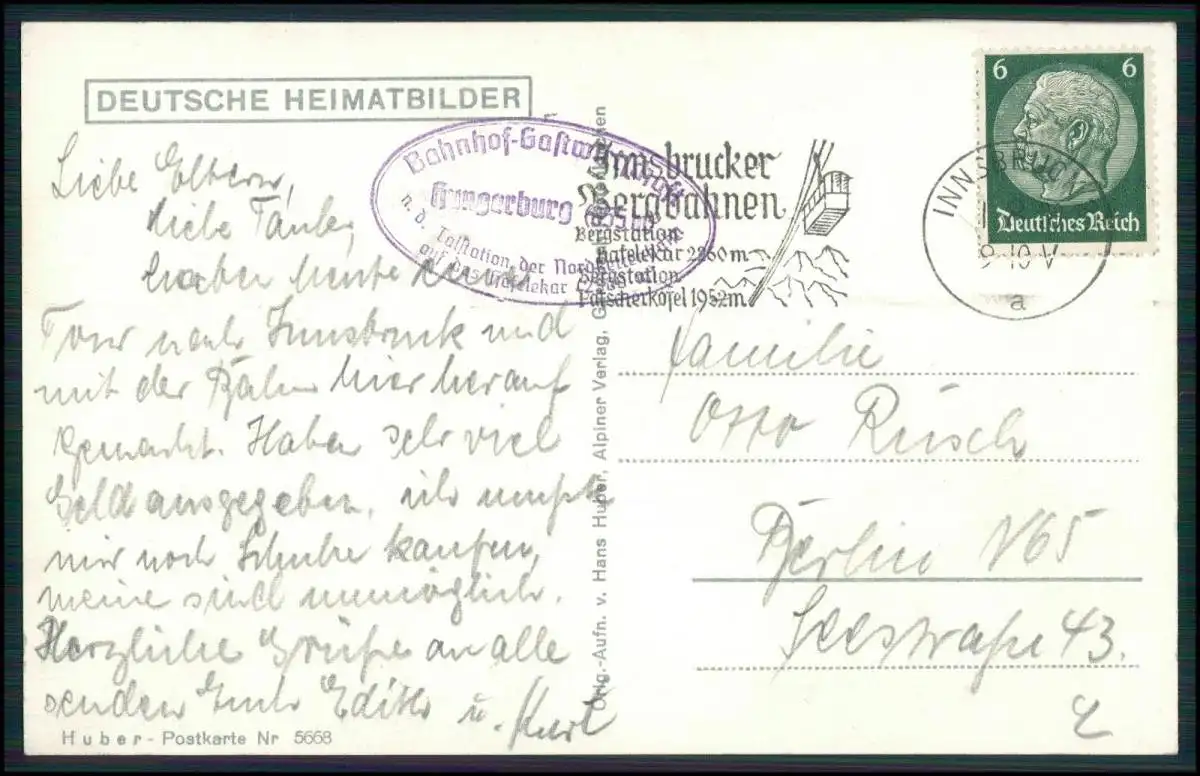 DEUTSCHE HEIMATBILDER
Liebe Eltern,
liebe Tante,
haben heute
Tour nach Innsbruck und
mit der Bahn hier herauf
gemacht. Haben sehr viel
Geld ausgegeben, ich mußte
mir noch Schuhe kaufen,
meine sind unmöglich.
Herzliche Grüße an alle
senden Euch Edith u. Kurt
Huber-Postkarte Nr 5668
Bahnhof-Gastwirtschaft
Hungerburg
n. d. Talstation der Nordkettenbahn
auf das Hafelekar
Orig.-Aufn. v. Hans Huber, Alpiner Verlag,
Innsbrucker
Bergbahnen
Bergstation
Hafelekar 2260m
Bergstation
Patscherkofel 1952m
INNSBRUCK
9-10 V
a
6 6
Deutsches Reich
Familie
Otto Rüsch
Berlin N65
Seestraße 43.